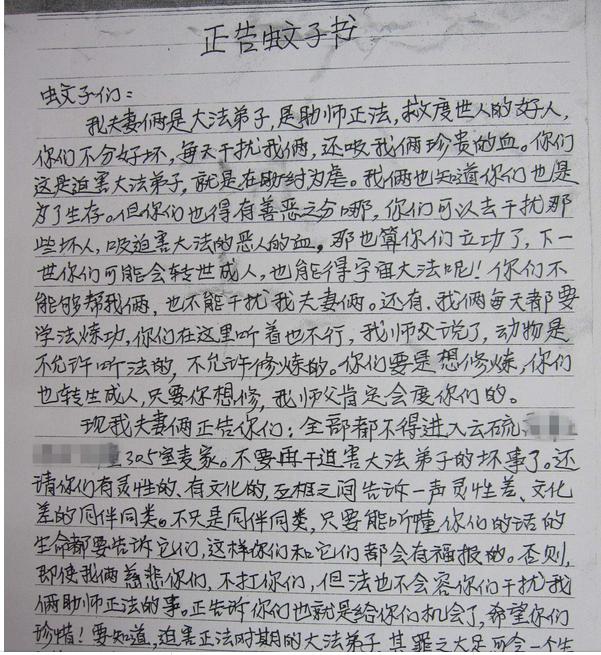 正告蚊子书
蚊子们：
我夫妻俩是大法弟子，是助师正法，救度世人的好人，
你们不分好坏，每天干扰我俩，还吸我俩珍贵的血。你们
这是迫害大法弟子，就是在助纣为虐。我俩也知道你们也是
为了生存。但你们也得有善恶之分哪，你们可以去干扰那
些坏人，吸迫害大法的恶人的血，那也算你们立功了，下一
世你们可能会转世成人，也能得宇宙大法呢！你们不
能够帮我俩，也不能干扰我夫妻俩。还有，我俩每天都要
学法炼功，你们在这里听着也不行，我师父说了，动物是
不允许听法的，不允许修炼的。你们要是想修炼，你们
也转生成人，只要你想修，我师父肯定会度你们的。
现我夫妻俩正告你们：全部都不得进入云硫
305室麦家。不要再干迫害大法弟子的坏事了。还
请你们有灵性的、有文化的，互相之间告诉一声灵性差、文化
差的同伴同类。不只是同伴同类，只要能听懂你们的话的
生命都要告诉它们，这样你们和它们都会有福报的。否则，
即使我俩慈悲你们，不打你们，但法也不会容你们干扰我
俩助师正法的事。正告诉你们也就是给你们机会了，希望你们
珍惜！要知道，迫害正法时期的大法弟子，其罪之大足可令一个生